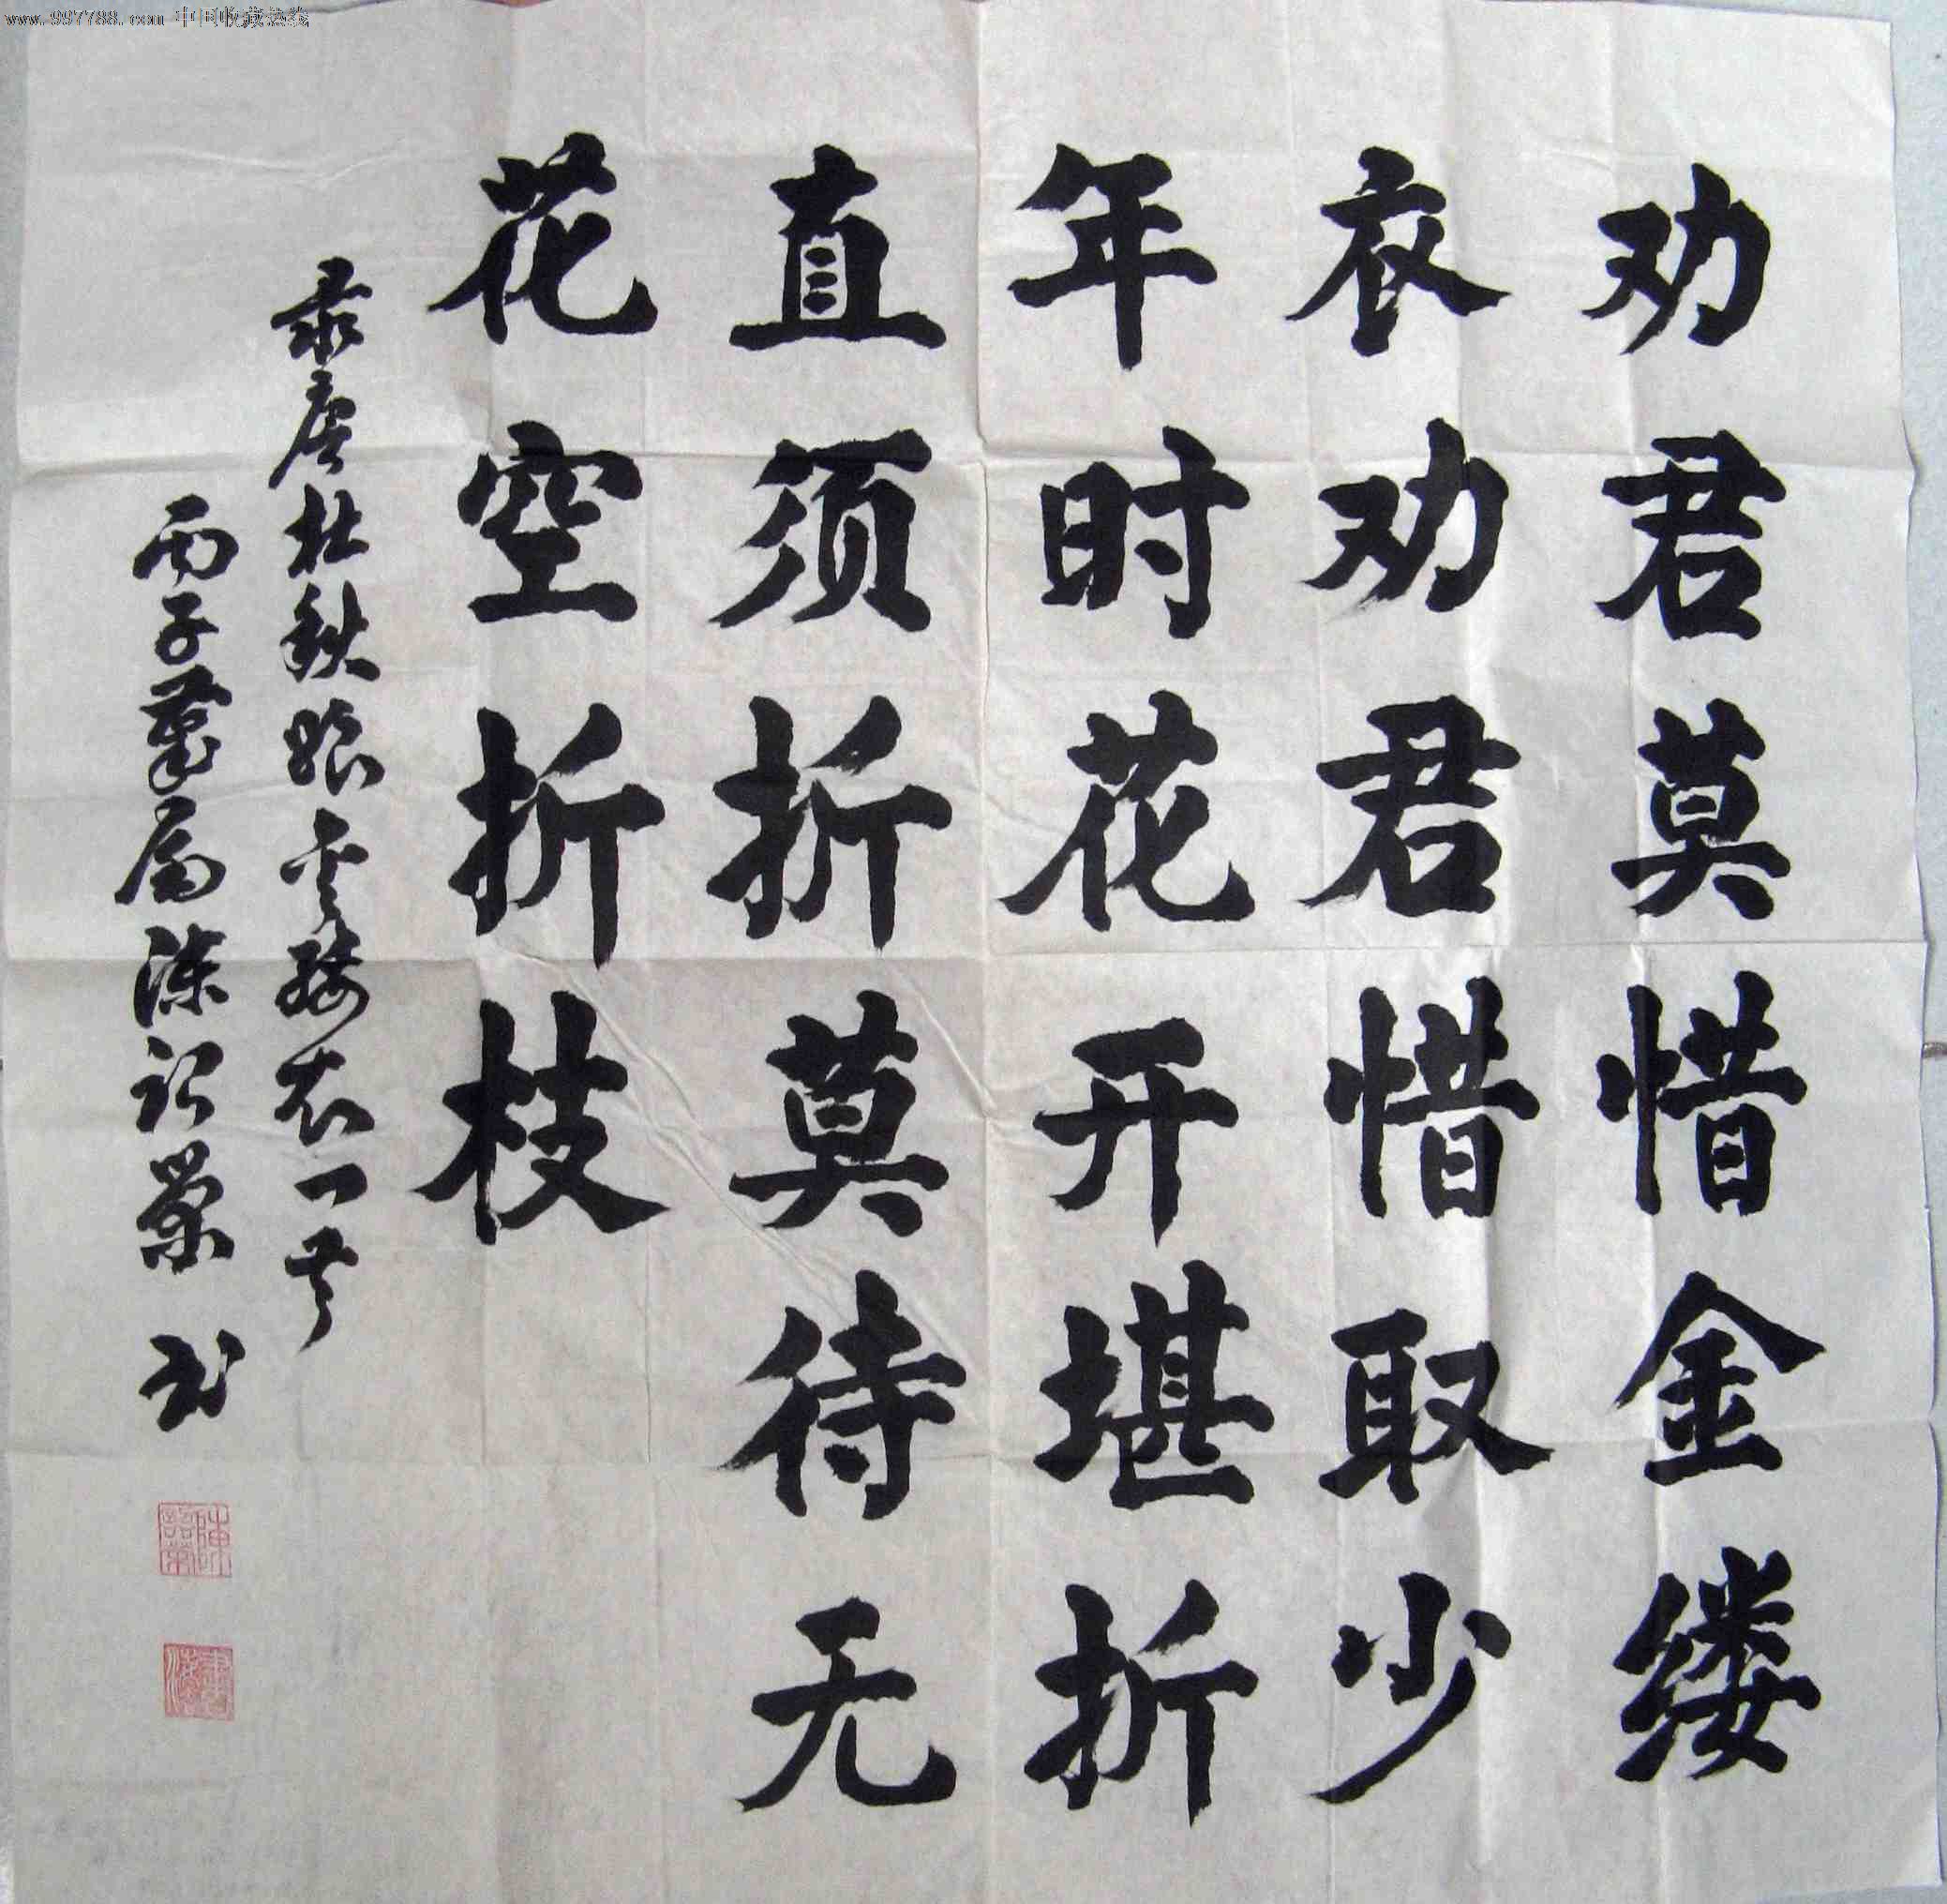 www.997788.com 中国收藏热线
劝君莫惜金缕
衣劝君惜取少
年时花开堪折
直须折莫待无
花空折枝
录唐杜秋娘金缕衣一首
丙子 陈 荣书